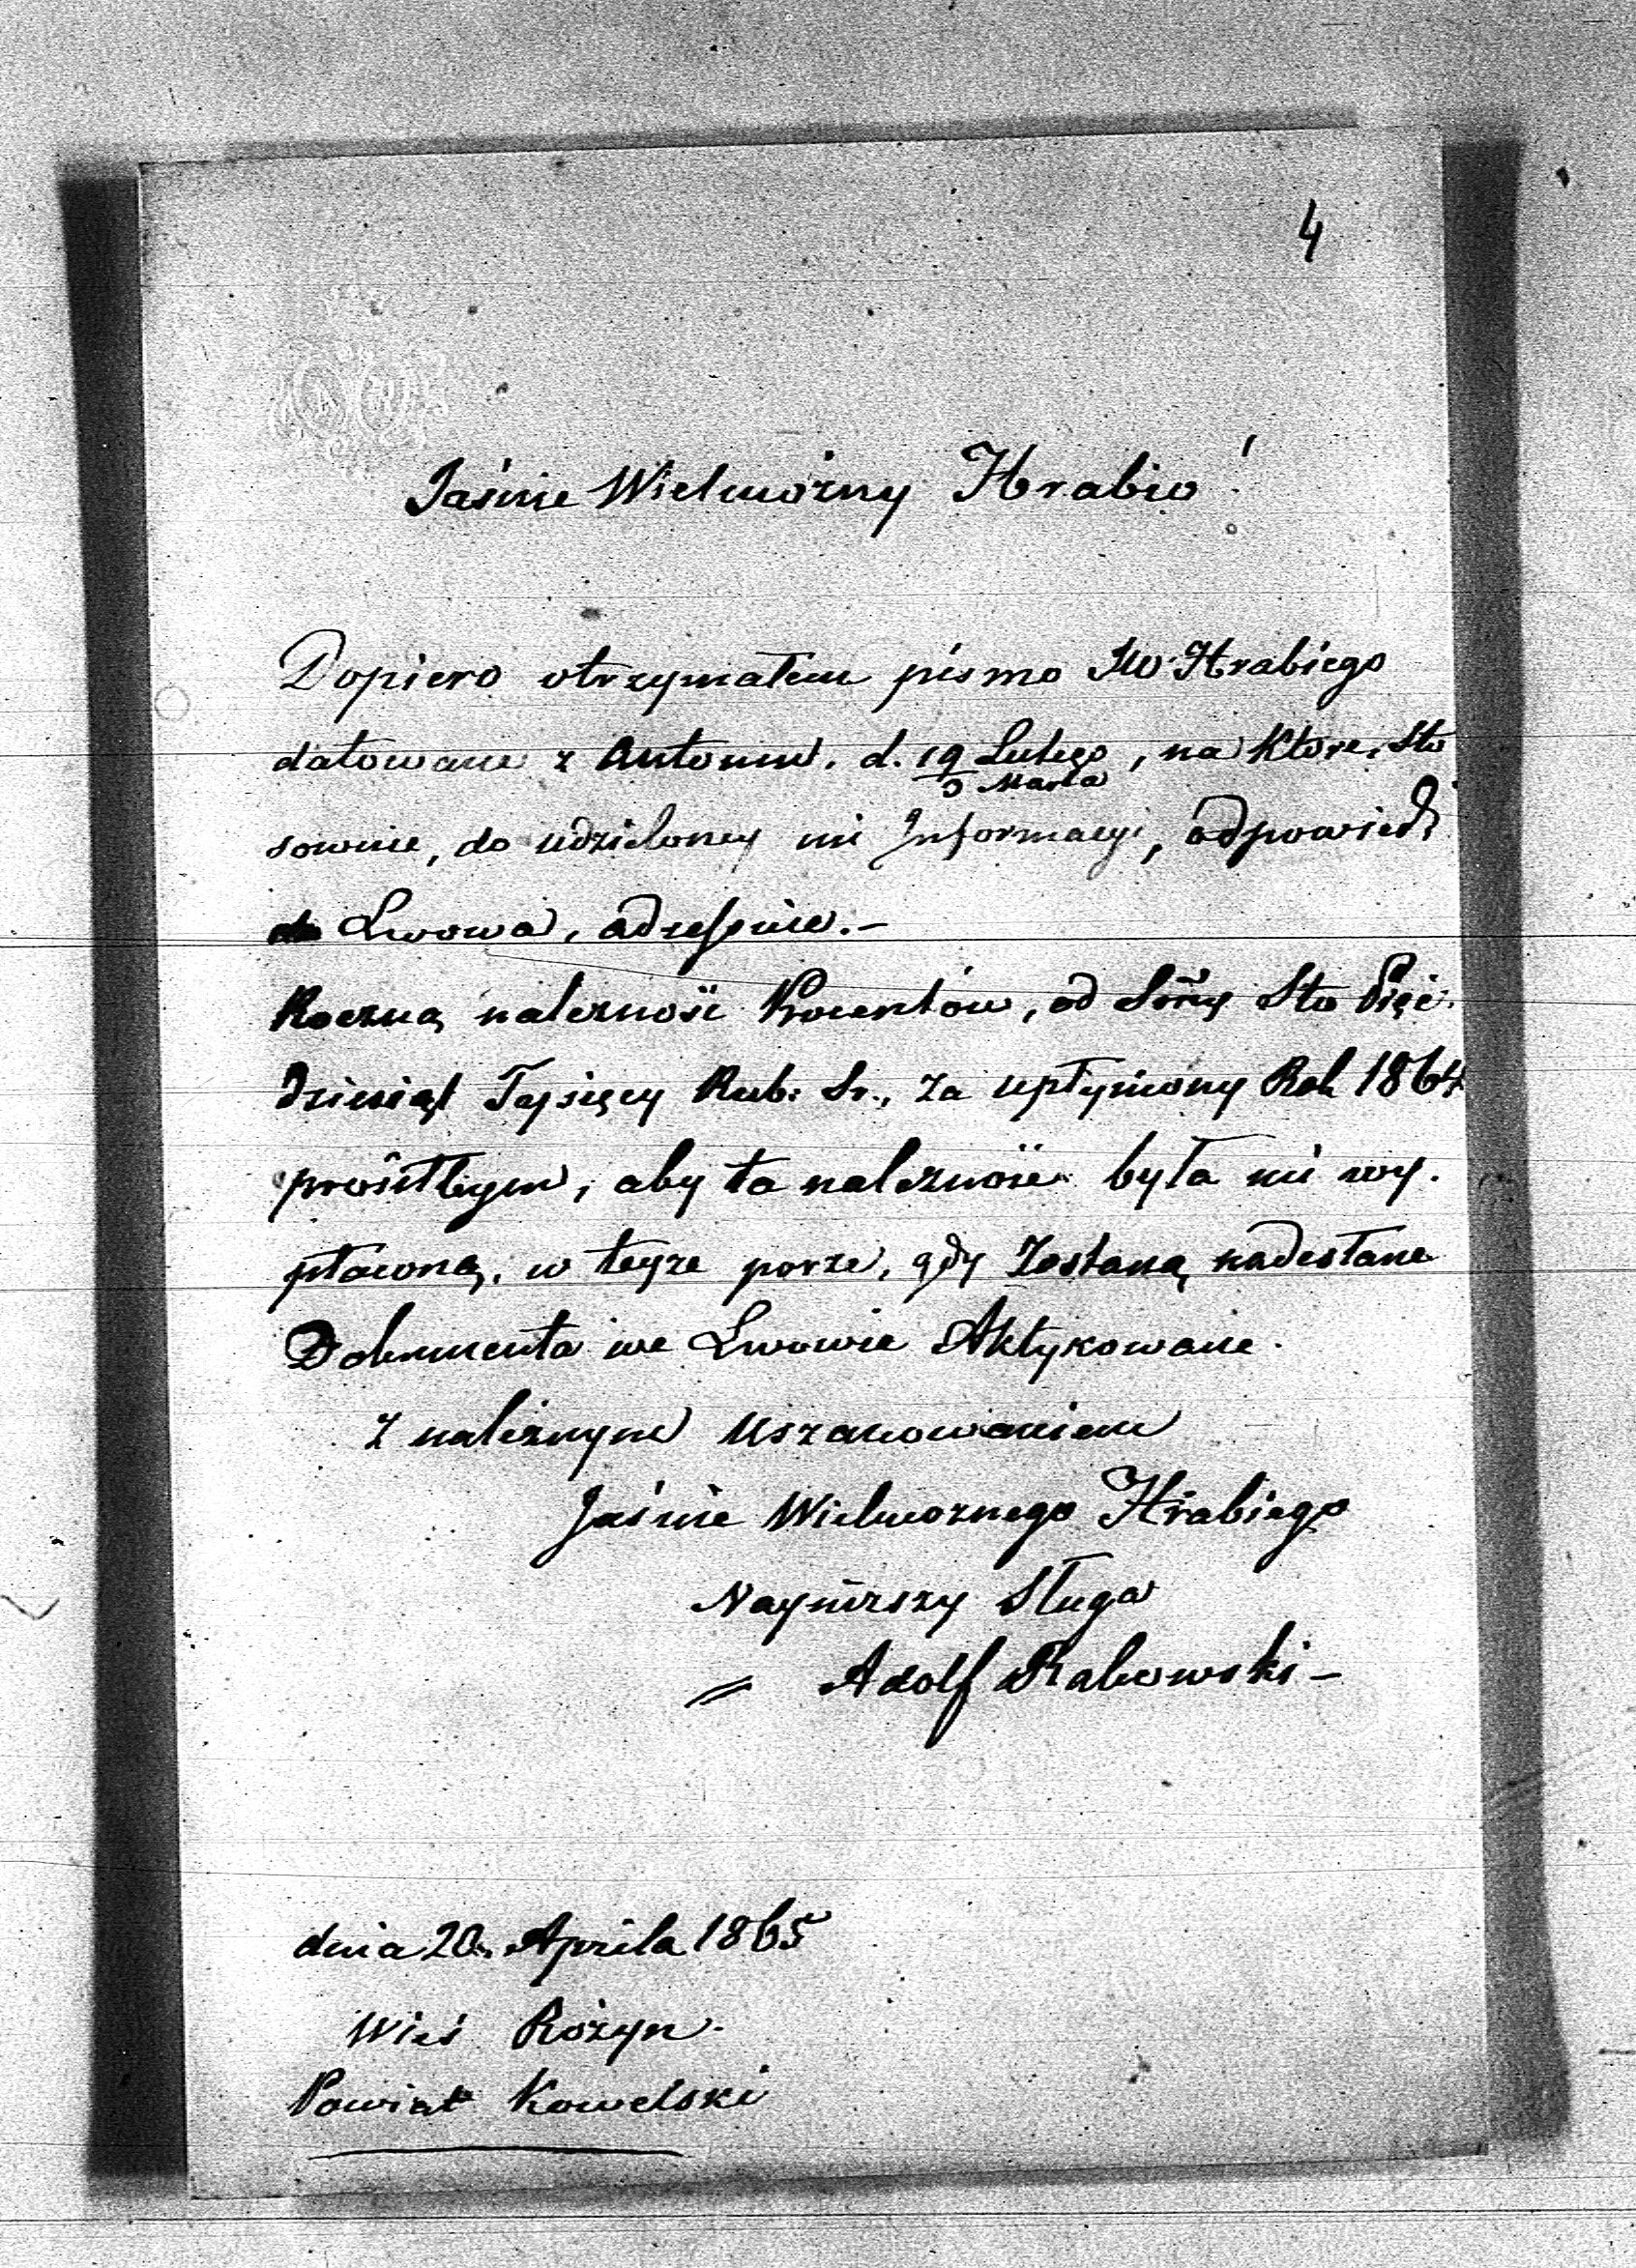 4
Jaśnie Wielmożny Hrabio!
Dopiero otrzymałem pismo JW Hrabiego
datowane z Antonin. d. 19 Lutego, na które, Sto
3 Marca
sownie, do udzieloney mi Informacyi, odpowiedź
do Lwowa, adresuie.-
Roczną należność Procentów, od Sumy Sto Pięć.
dziesiąt Tysięcy Rub: Sr., za upłyniony Rok 1864
prosiłbym, aby ta należność była mi wy.
płaconą, w teyże porze, gdy Zostaną nadesłane
Dokumenta we Lwowie Aktykowane.
Z należnym Uszanowaniem
Jaśnie Wielmożnego Hrabiego
Nayniższy Sługa
Adolf
dnia 20. Aprila 1865
Wieś Rożyn.
Powiat Kowelski